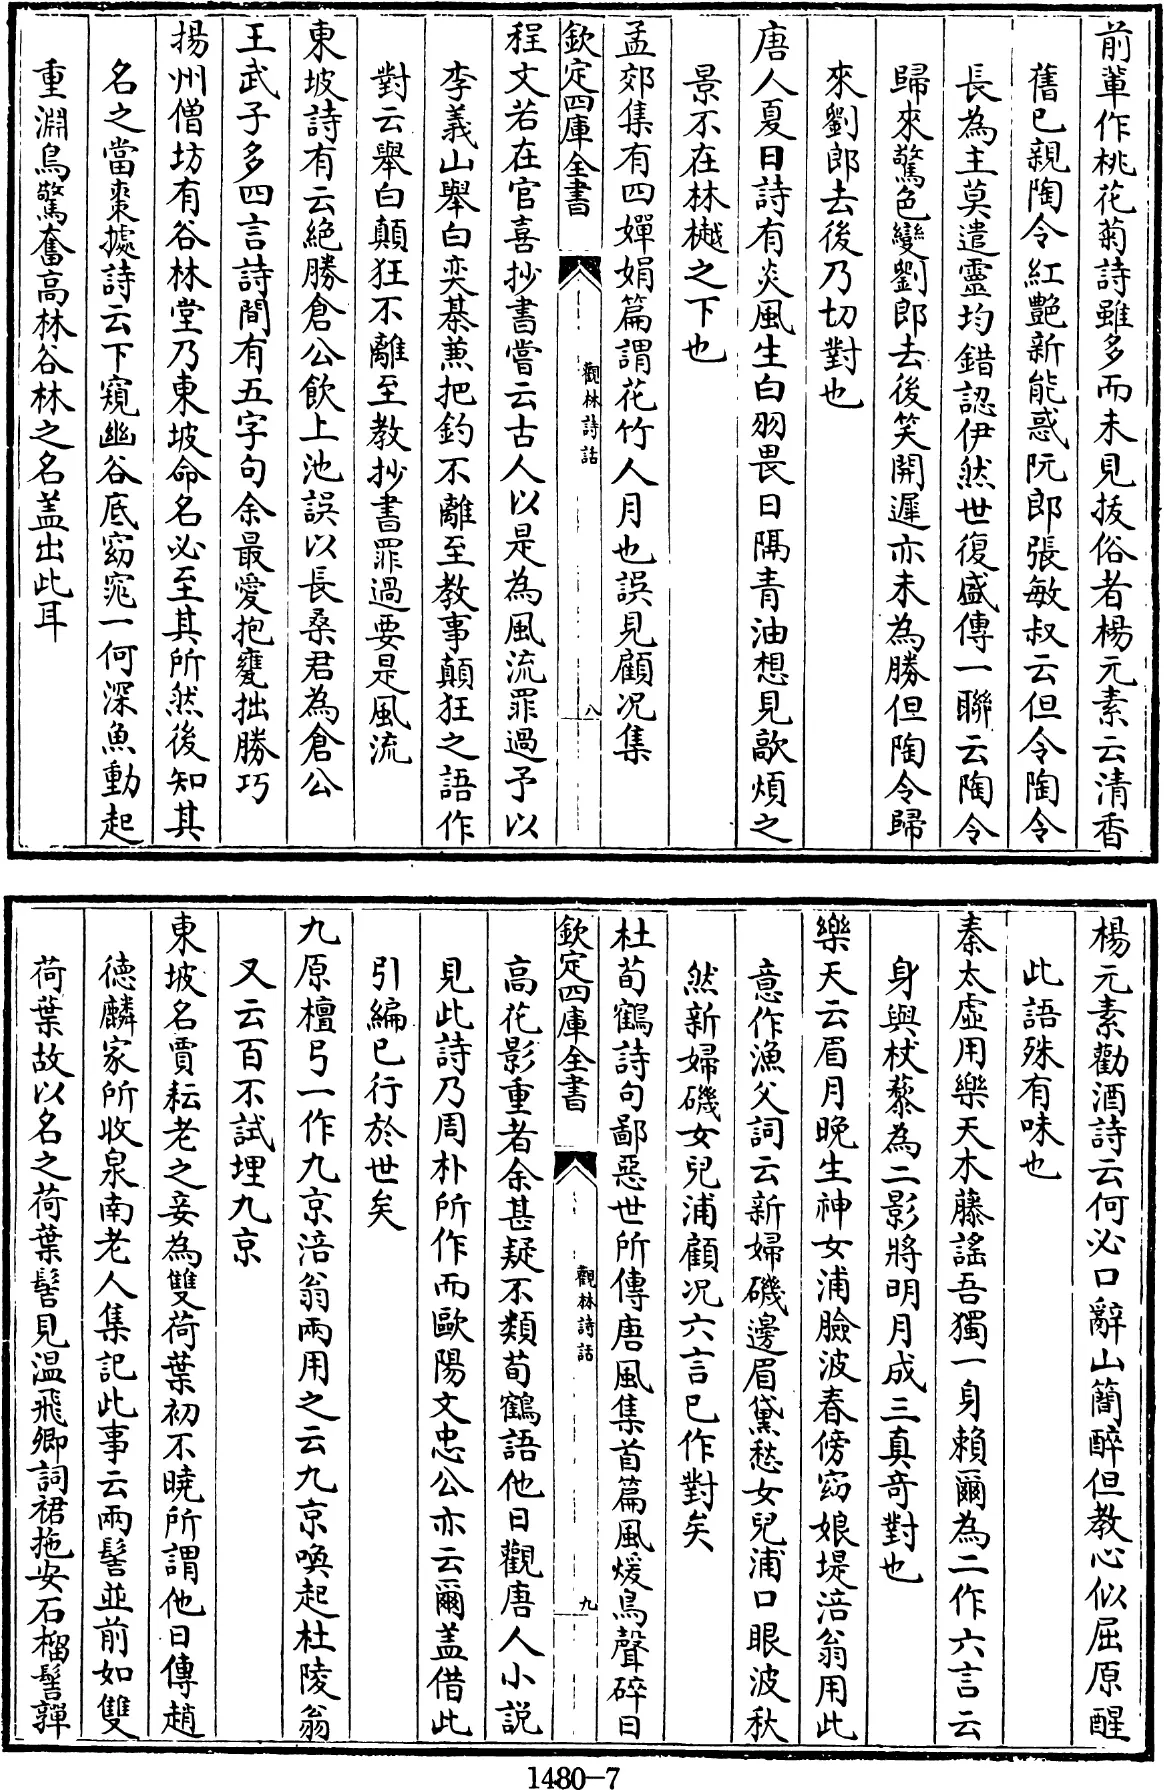 前輩作桃花菊詩雖多而未見拔俗者楊元素云清香
舊已親陶令紅艷新能惑阮郎張敏叔云但令陶令
長為主莫遣靈均錯認伊然世復盛傳一聯云陶令
歸來驚色變劉郎去後笑開遲亦未為勝但陶令歸
來劉郎去後乃切對也
唐人夏日詩有炎風生白羽畏日隔青油想見歊煩之
景不在林樾之下也
孟郊集有四嬋娟篇謂花竹人月也誤見顧况集
欽定四庫全書
觀林詩話
八
程文若在官喜抄書嘗云古人以是為風流罪過予以
李義山舉白奕棊兼把釣不離至教事顛狂之語作
對云舉白顛狂不離至教抄書罪過要是風流
東坡詩有云絶勝倉公飲上池誤以長桑君為倉公
王武子多四言詩間有五字句余最愛抱甕拙勝巧
揚州僧坊有谷林堂乃東坡命名必至其所然後知其
名之當棗據詩云下窺幽谷底窈窕一何深魚動起
重淵鳥驚奮高林谷林之名盖出此耳
楊元素勸酒詩云何必口辭山簡醉但教心似屈原醒
此語殊有味也
秦太虛用樂天木藤謠吾獨一身賴爾為二作六言云
身與杖藜為二影將明月成三真奇對也
樂天云眉月晚生神女浦臉波春傍窈娘堤涪翁用此
意作漁父詞云新婦磯邊眉黛愁女兒浦口眼波秋
然新婦磯女兒浦顧况六言已作對矣
杜荀鶴詩句鄙惡世所傳唐風集首篇風煖鳥聲碎日
欽定四庫全書
觀林詩話
九
高花影重者余甚疑不類荀鶴語他日觀唐人小説
見此詩乃周朴所作而歐陽文忠公亦云爾盖借此
引編已行於世矣
九原檀弓一作九京涪翁兩用之云九京喚起杜陵翁
又云百不試埋九京
東坡名賈耘老之妾為雙荷葉初不曉所謂他日傳趙
德麟家所收泉南老人集記此事云兩髻並前如雙
荷葉故以名之荷葉髻見温飛卿詞裙拖安石榴髻嚲
1480-7